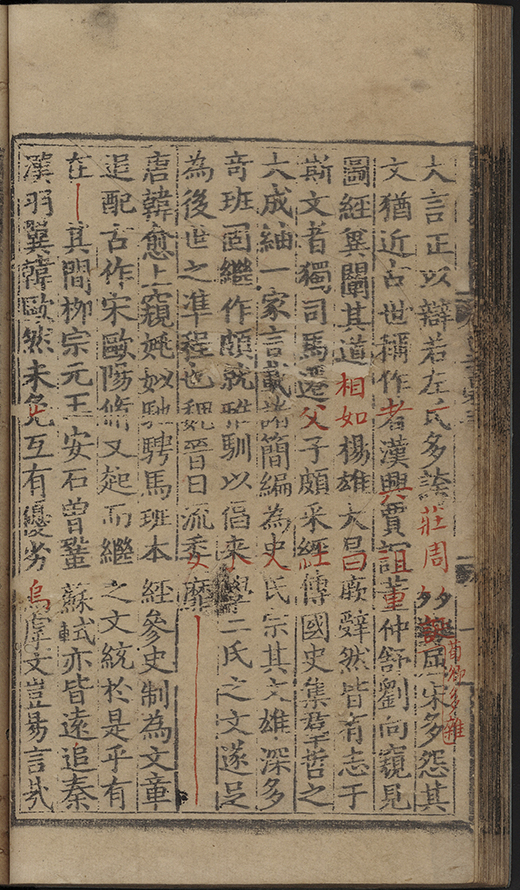 大言正以辯若左氏多誇莊周多屈宋多怨其
荀卿多雜
文猶近古世稱作者漢興賈誼董仲舒劉向窺見
圖經異闡其道相如楊雄大昌厥辭然皆有志于
嶄文者獨司馬遷父子頗采經傳國史集羣哲之
大成紬一家言載諸簡編為史氏宗其文雄深多
奇班固繼作頗就雅馴以倡来學二氏之文遂足
為後世之準程也魏晉日流委靡
唐韓愈上窺姚姒馳騁馬班本經參史制為文章
追配古作宋歐陽脩又起而繼之文統於是乎有
在其間柳宗元王安石曾鞏蘇軾亦皆遠追秦
漢羽翼韓歐然未免互有優劣烏虖文豈易言哉